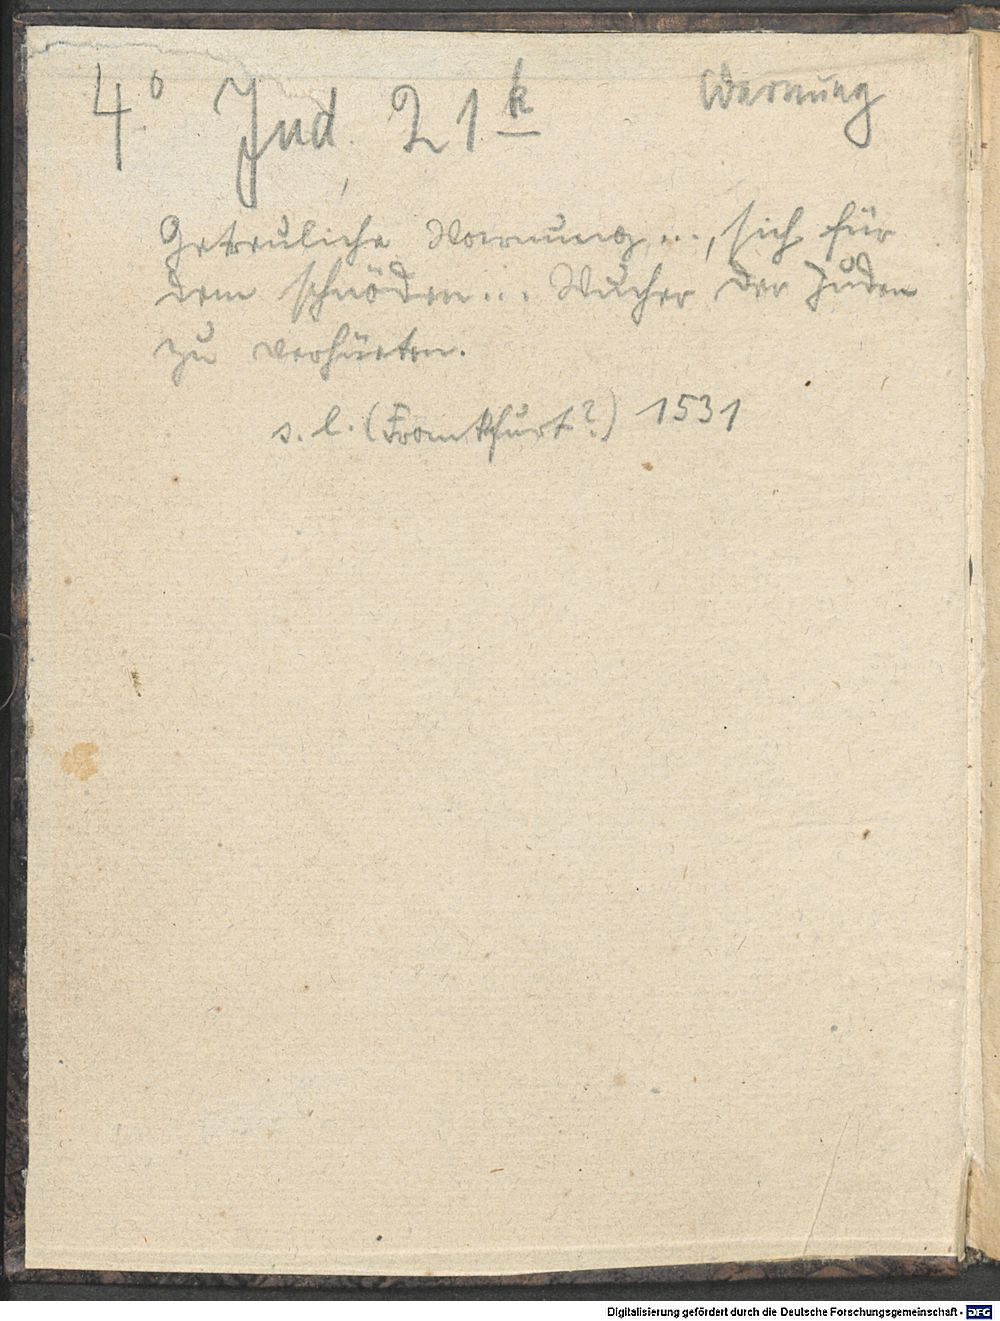 4° Jud. 21 k Warnung
Getreuliche Warnung..., sich für
dem schnöden... Wucher der Juden
zu verhüeten.
s. l. (Frankfurt?) 1531
Digitalisierung gefördert durch die Deutsche Forschungsgemeinschaft - DFG